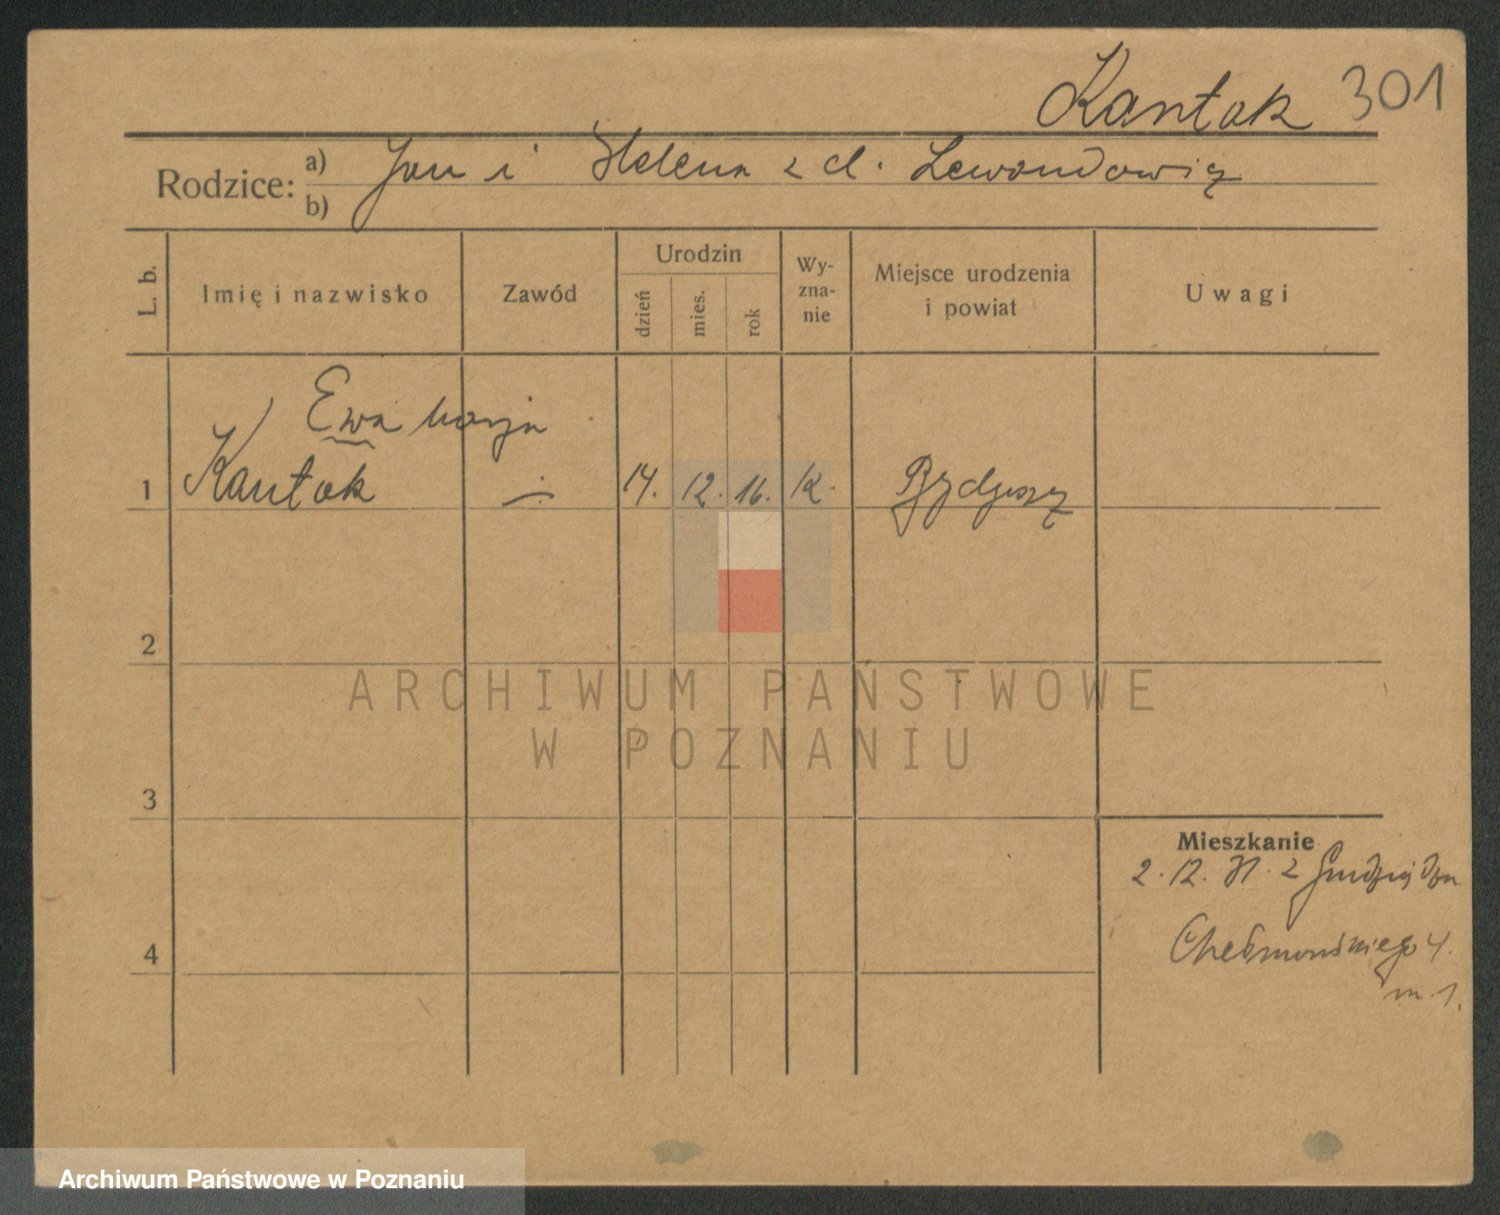 Kantak 301
Rodzice: a) Jan i Helena z d.
b)
L. b.
Imię i nazwisko
Zawód
Urodzin
dzień
mies.
rok
Wy-
zna-
nie
Miejsce urodzenia
i powiat
Uwagi
Ewa Marja
1 Kantak 14. 12. 16. k. Bydgoszcz
2
3
4
ARCHIWUM PAŃSTWOWE
W POZNANIU
Mieszkanie
2. 12. 31. z Grudziądza
Chełmońskiego 4.
m. 1.
Archiwum Państwowe w Poznaniu